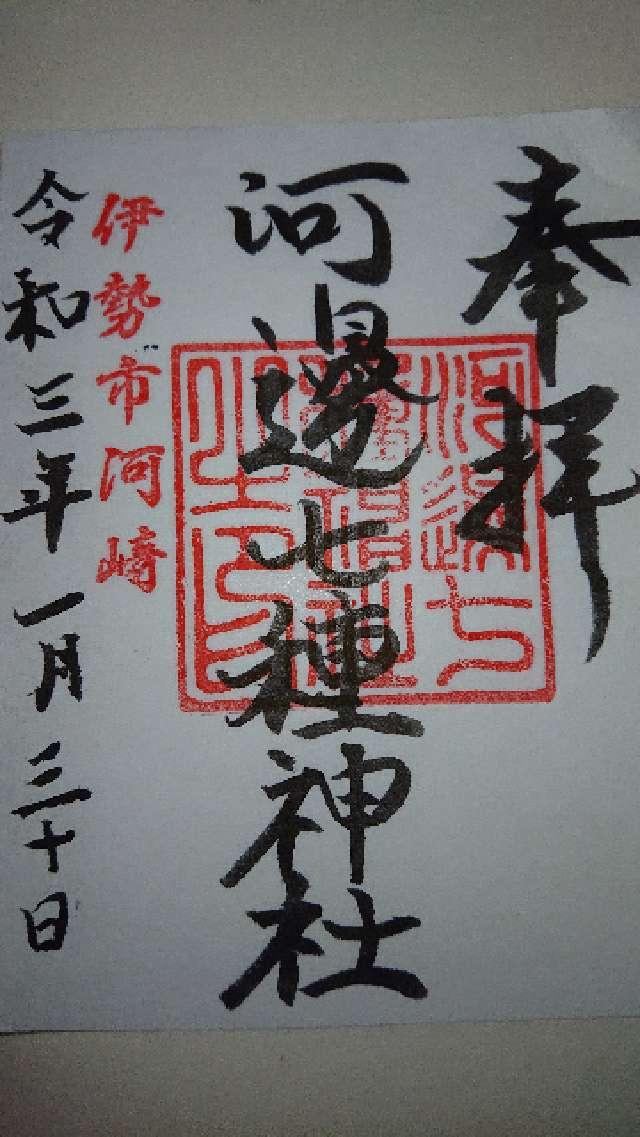 奉拝
河邊七種神社
河邊七種神社之印
伊勢市河崎
令和三年一月三十日